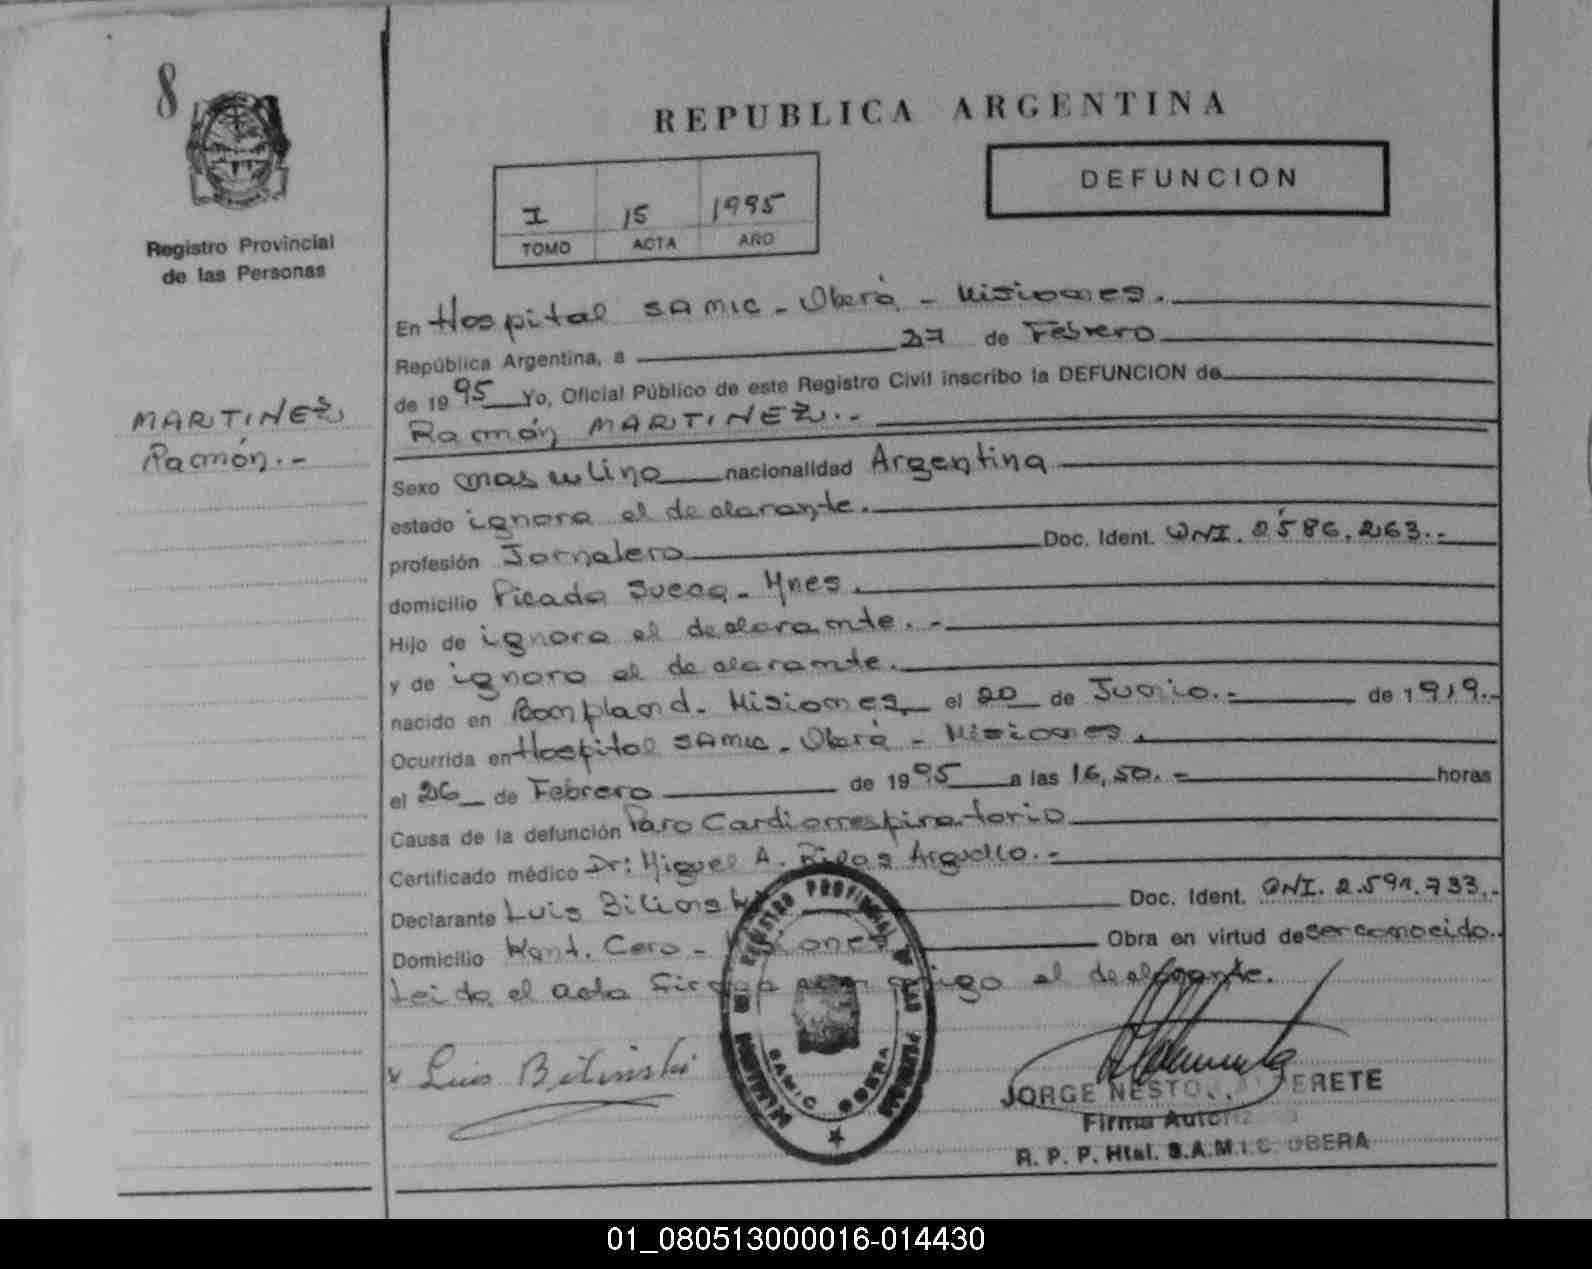 8
REPUBLICA ARGENTINA
DEFUNCION
I 15 1995
TOMO ACTA AÑO
Registro Provincial
de las Personas
MARTINEZ
Ramón.-
En Hospital SAMIC - Oberá - Misiones.
República Argentina, a 27 de Febrero
de 1995 Yo, Oficial Público de este Registro Civil inscribo la DEFUNCION de
Ramón MARTINEZ.-
Sexo masculino nacionalidad Argentina
estado ignora el declarante.
profesión Jornalero Doc. Ident. DNI. 2586.263.-
domicilio Picada Sueca - Mnes.
Hijo de ignora el declarante.-
y de ignora el declarante.
nacido en Bompland - Misiones, el 20 de Junio.- de 1919.-
Ocurrida en Hospital SAMIC - Oberá - Misiones.
el 26 de Febrero de 1995 a las 16,50.- horas
Causa de la defunción Paro Cardiorrespiratorio
Certificado médico Dr: Miguel A. Rivas Arguello.-
Declarante Luis Bilinski Doc. Ident. DNI. 2.591.733.-
Domicilio Kant. Cero - Misiones Obra en virtud de ser conocido.
Leida el acta Firma conmigo el declarante.
x Luis Bilinski
REGISTRO PROVINCIAL DE LAS PERSONAS
MISIONES
SAMIC OBERA
JORGE NESTOR ALDERETE
Firma Autorizada
R. P. P. Htal. S.A.M.I.C. OBERA
01_080513000016-014430